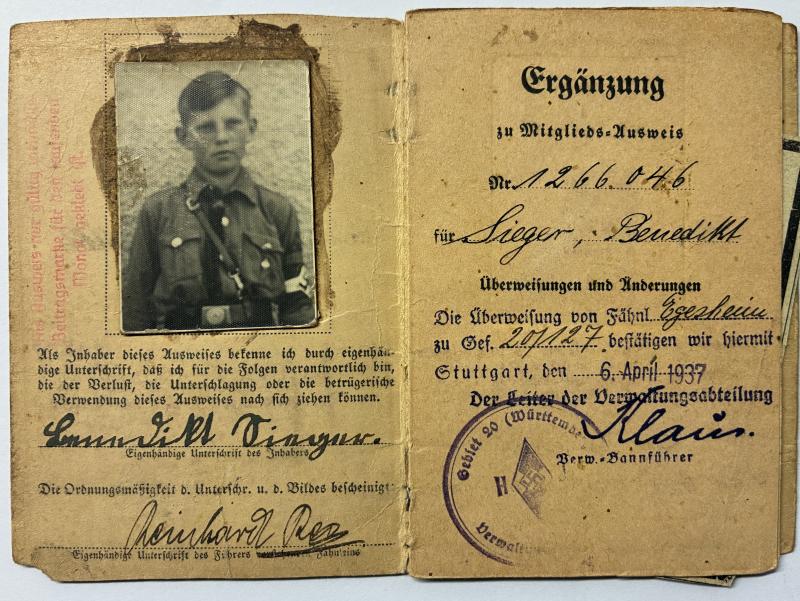 Dieser Ausweis nur gültig wenn die
Beitragsmarke für den laufenden
Monat geklebt ist.
Als Inhaber dieses Ausweises bekenne ich durch eigenhän-
dige Unterschrift, daß ich für die Folgen verantwortlich bin,
die der Verlust, die Unterschlagung oder die betrügerische
Verwendung dieses Ausweises nach sich ziehen können.
Benedikt Sieger.
Eigenhändige Unterschrift des Inhabers
Die Ordnungsmäßigkeit d. Unterschr. u. d. Bildes bescheinigt:
Reinhard
Eigenhändige Unterschrift des Führers Fähnleins
Ergänzung
zu Mitglieds-Ausweis
Nr. 1266.046
für Sieger, Benedikt
Überweisungen und Änderungen
Die Überweisung von Fähnl. Egesheim
zu Gef. 20/127 bestätigen wir hiermit
Stuttgart, den 6. April 1937
Der Leiter der Verwaltungsabteilung
Klaus.
Verw.-Bannführer
Gebiet 20 (Württemb
H
Verwalt